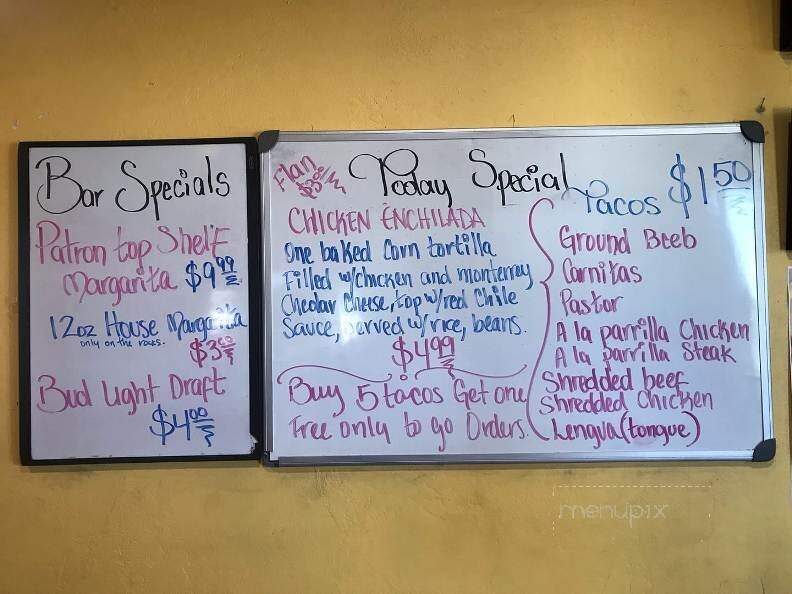 Bar Specials
Patron top Shelf
Margarita $9.99
12oz House Margarita
only on the rocks.
$3.00
Bud Light Draft
$4.00
Flan
$3.00
Today Special
CHICKEN ENCHILADA
One baked Corn tortilla
Filled w/chicken and monterrey
Chedar Cheese, top w/red Chile
Sauce, served w/rice, beans.
$4.99
Buy 5 tacos Get one
Free only to go Orders.
Tacos $1.50
Ground Beeb
Carnitas
Pastor
A la parrilla Chicken
A la parrilla Steak
Shredded beef
Shredded Chicken
Lengua (tongue)
menupix